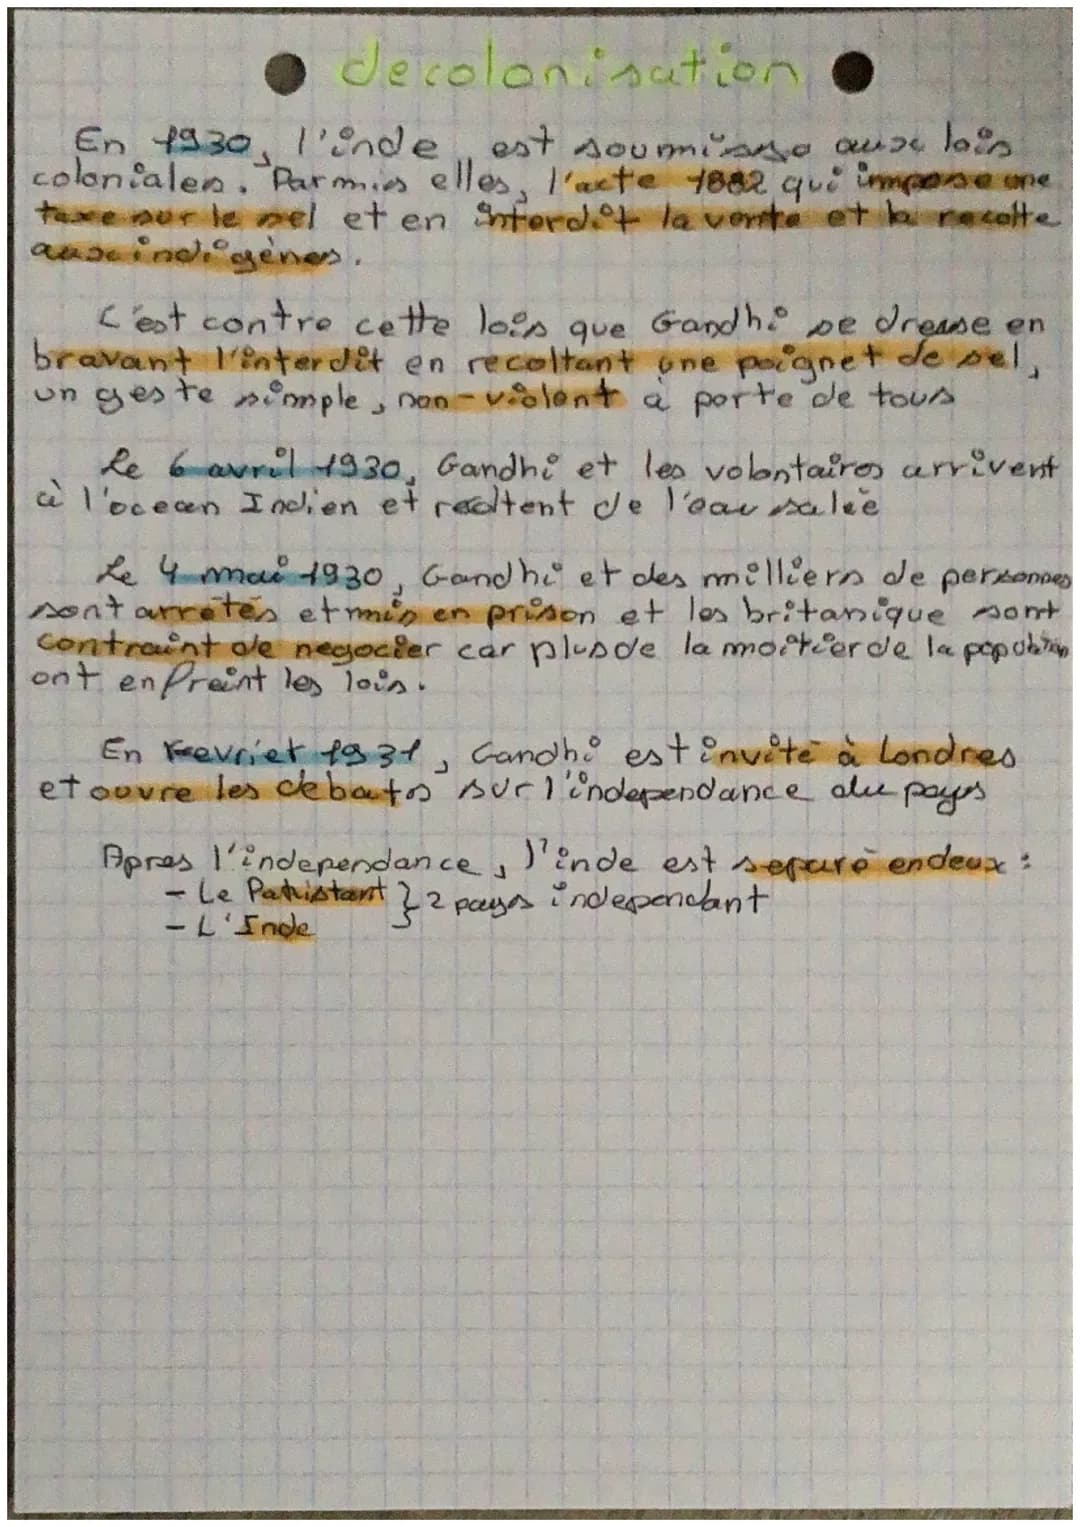 decolonisation
En 1930, l'inde est soumisse aux lois
coloniales. Parmis elles, l'acte 1882 qui impose une
taxe sur le sel et en interdit la vente et la recolte
aux indigènes.
C'est contre cette lois que Gandhi se dresse en
bravant l'interdit en recoltant une poignet de sel,
un geste simple, non-violent à porte de tous
Le 6 avril 1930, Gandhi et les volontaires arrivent
à l'ocean Indien et recoltent de l'eau salée
Le 4 mai 1930, Gandhi et des milliers de personnes
sont arrétés et mis en prison et les britanique sont
contraint de negocier car plus de la moitier de la population
ont enfreint les lois.
En Fevriet 1931, Gandhi est invité à Londres
et ouvre les debats sur l'independance du pays
Apres l'independance, l'inde est separé en deux :
- Le Pakistant } 2 pays independant
- L'Inde